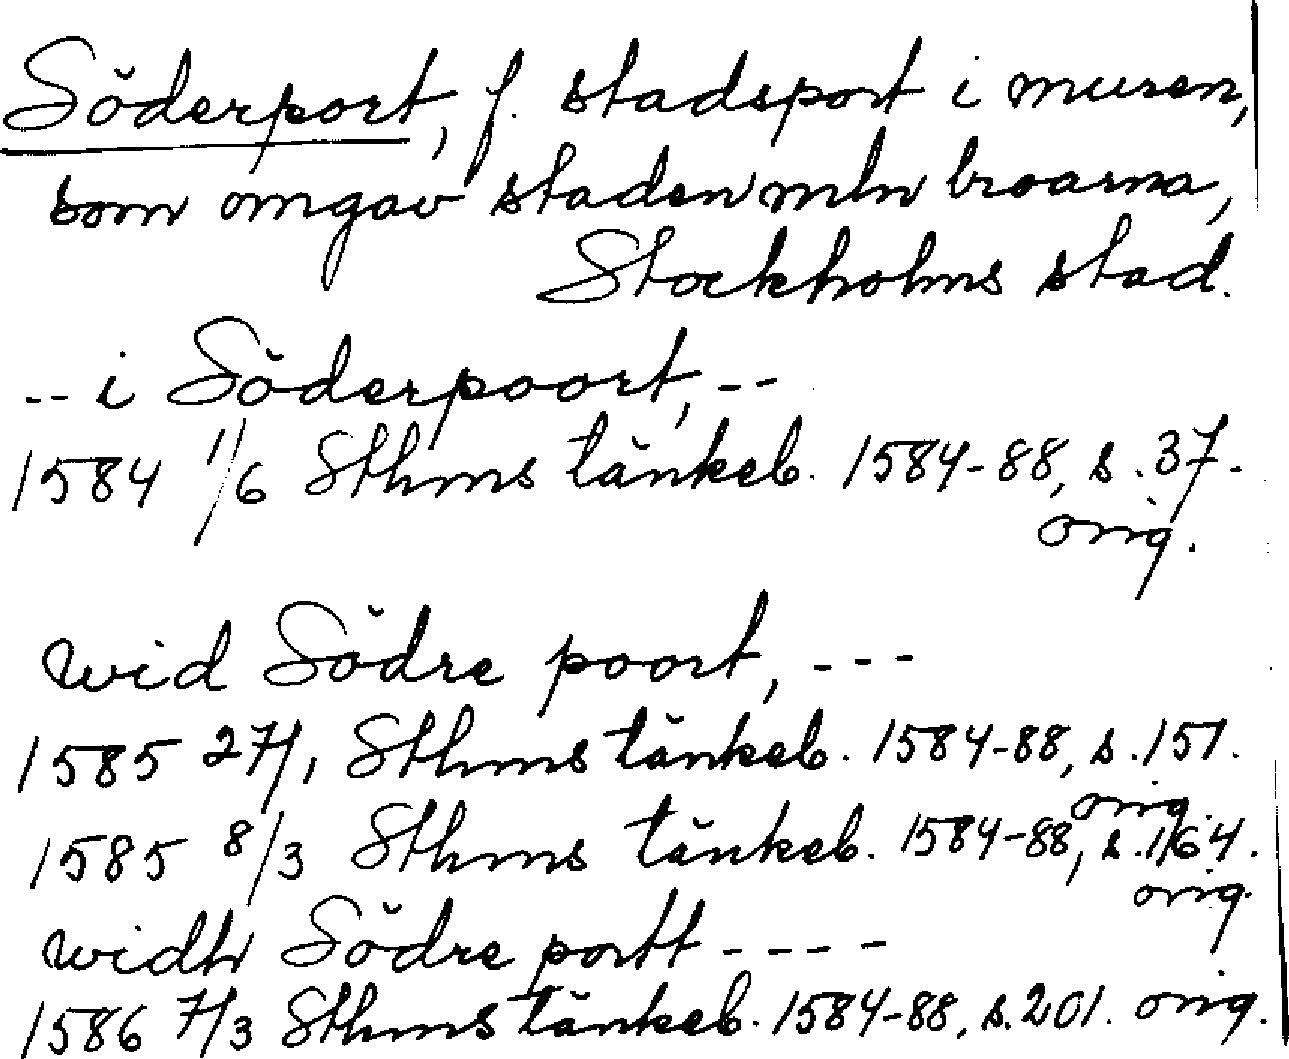 Söderport, f. stadsport i muren,
som omgav staden mln broarna,
Stockholms stad.
-- i Söderpoort, --
1584 1/6 Sthms tänkeb. 1584-88, s. 37.
orig.
wid Södre poort, ---
1585 27/1 Sthms tänkeb. 1584-88, s. 151.
orig.
1585 8/3 Sthms tänkeb. 1584-88, s. 164.
orig.
widh Södre portt ----
1586 7/3 Sthms tänkeb. 1584-88, s. 201. orig.